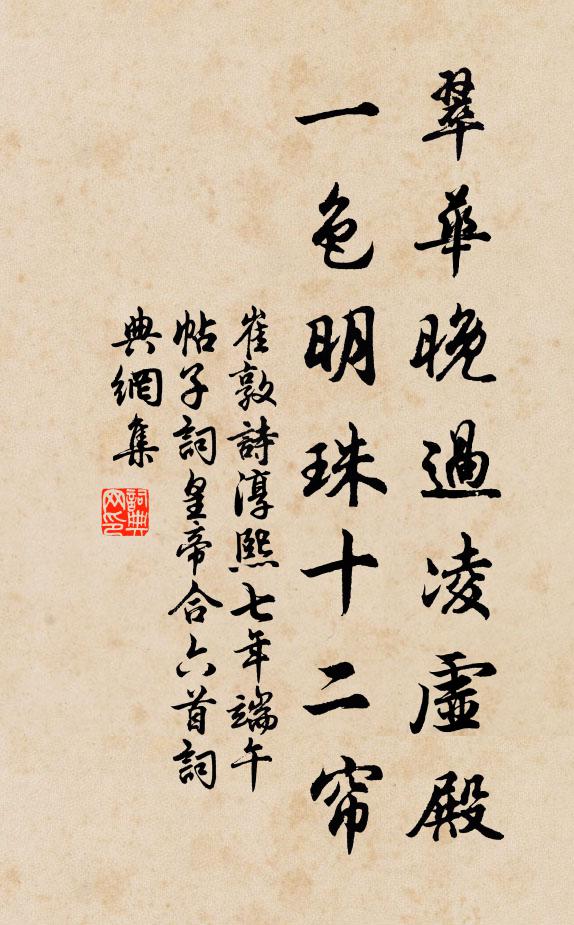 翠華晚過凌虛殿
一色明珠十二帘
崔敦詩淳熙七年端午
帖子詞皇帝合六首詞
典網集
詞典網印